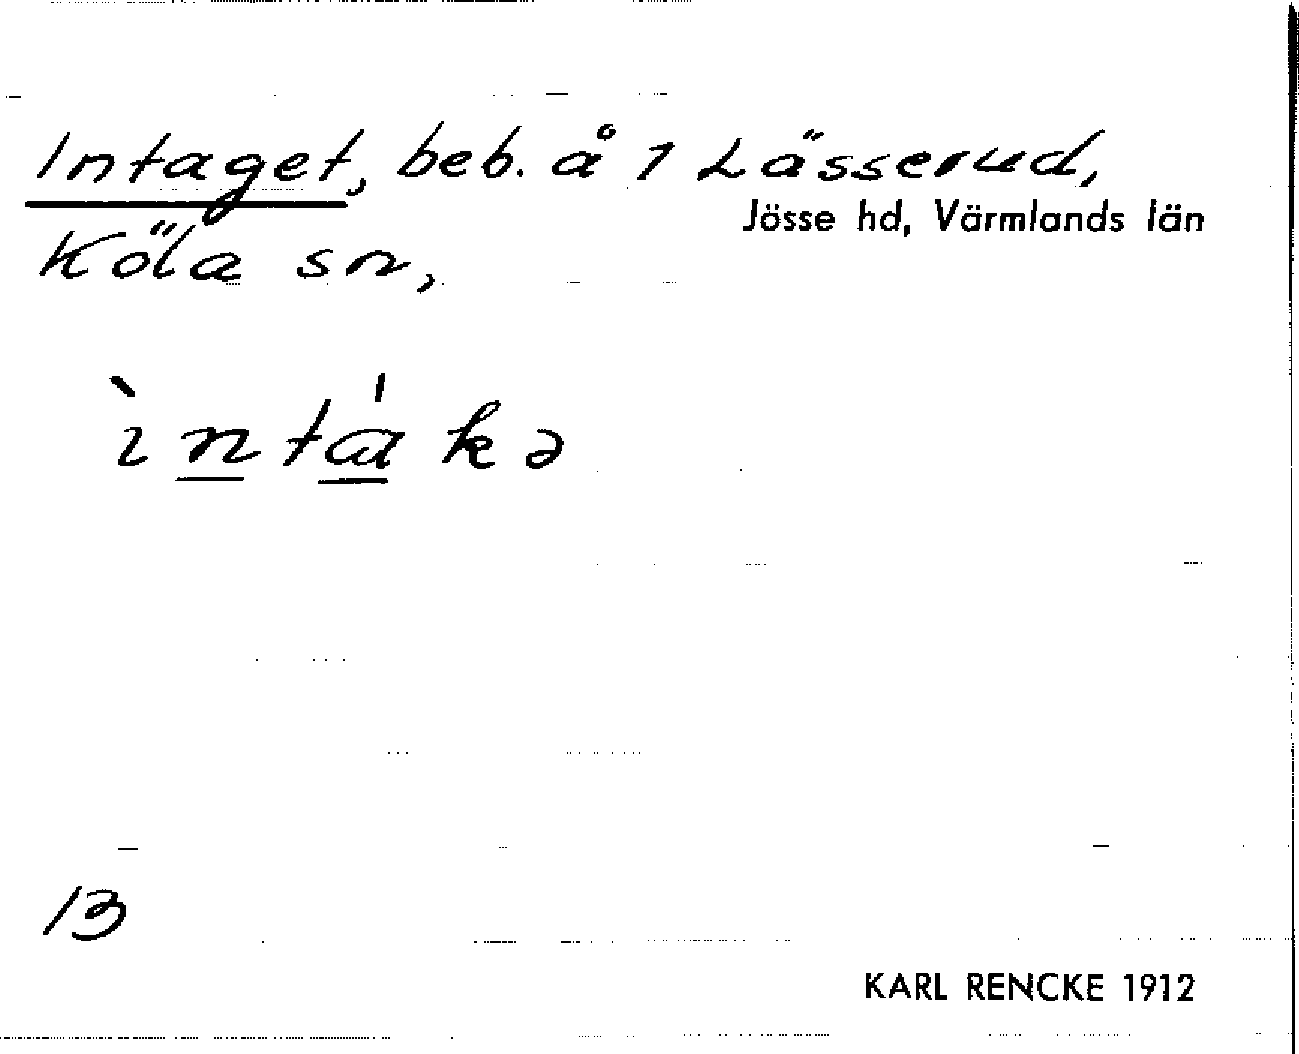 Intaget, beb. å 1 Lässerud,
Jösse hd, Värmlands län
Köla sn,
ìntákə
13
KARL RENCKE 1912